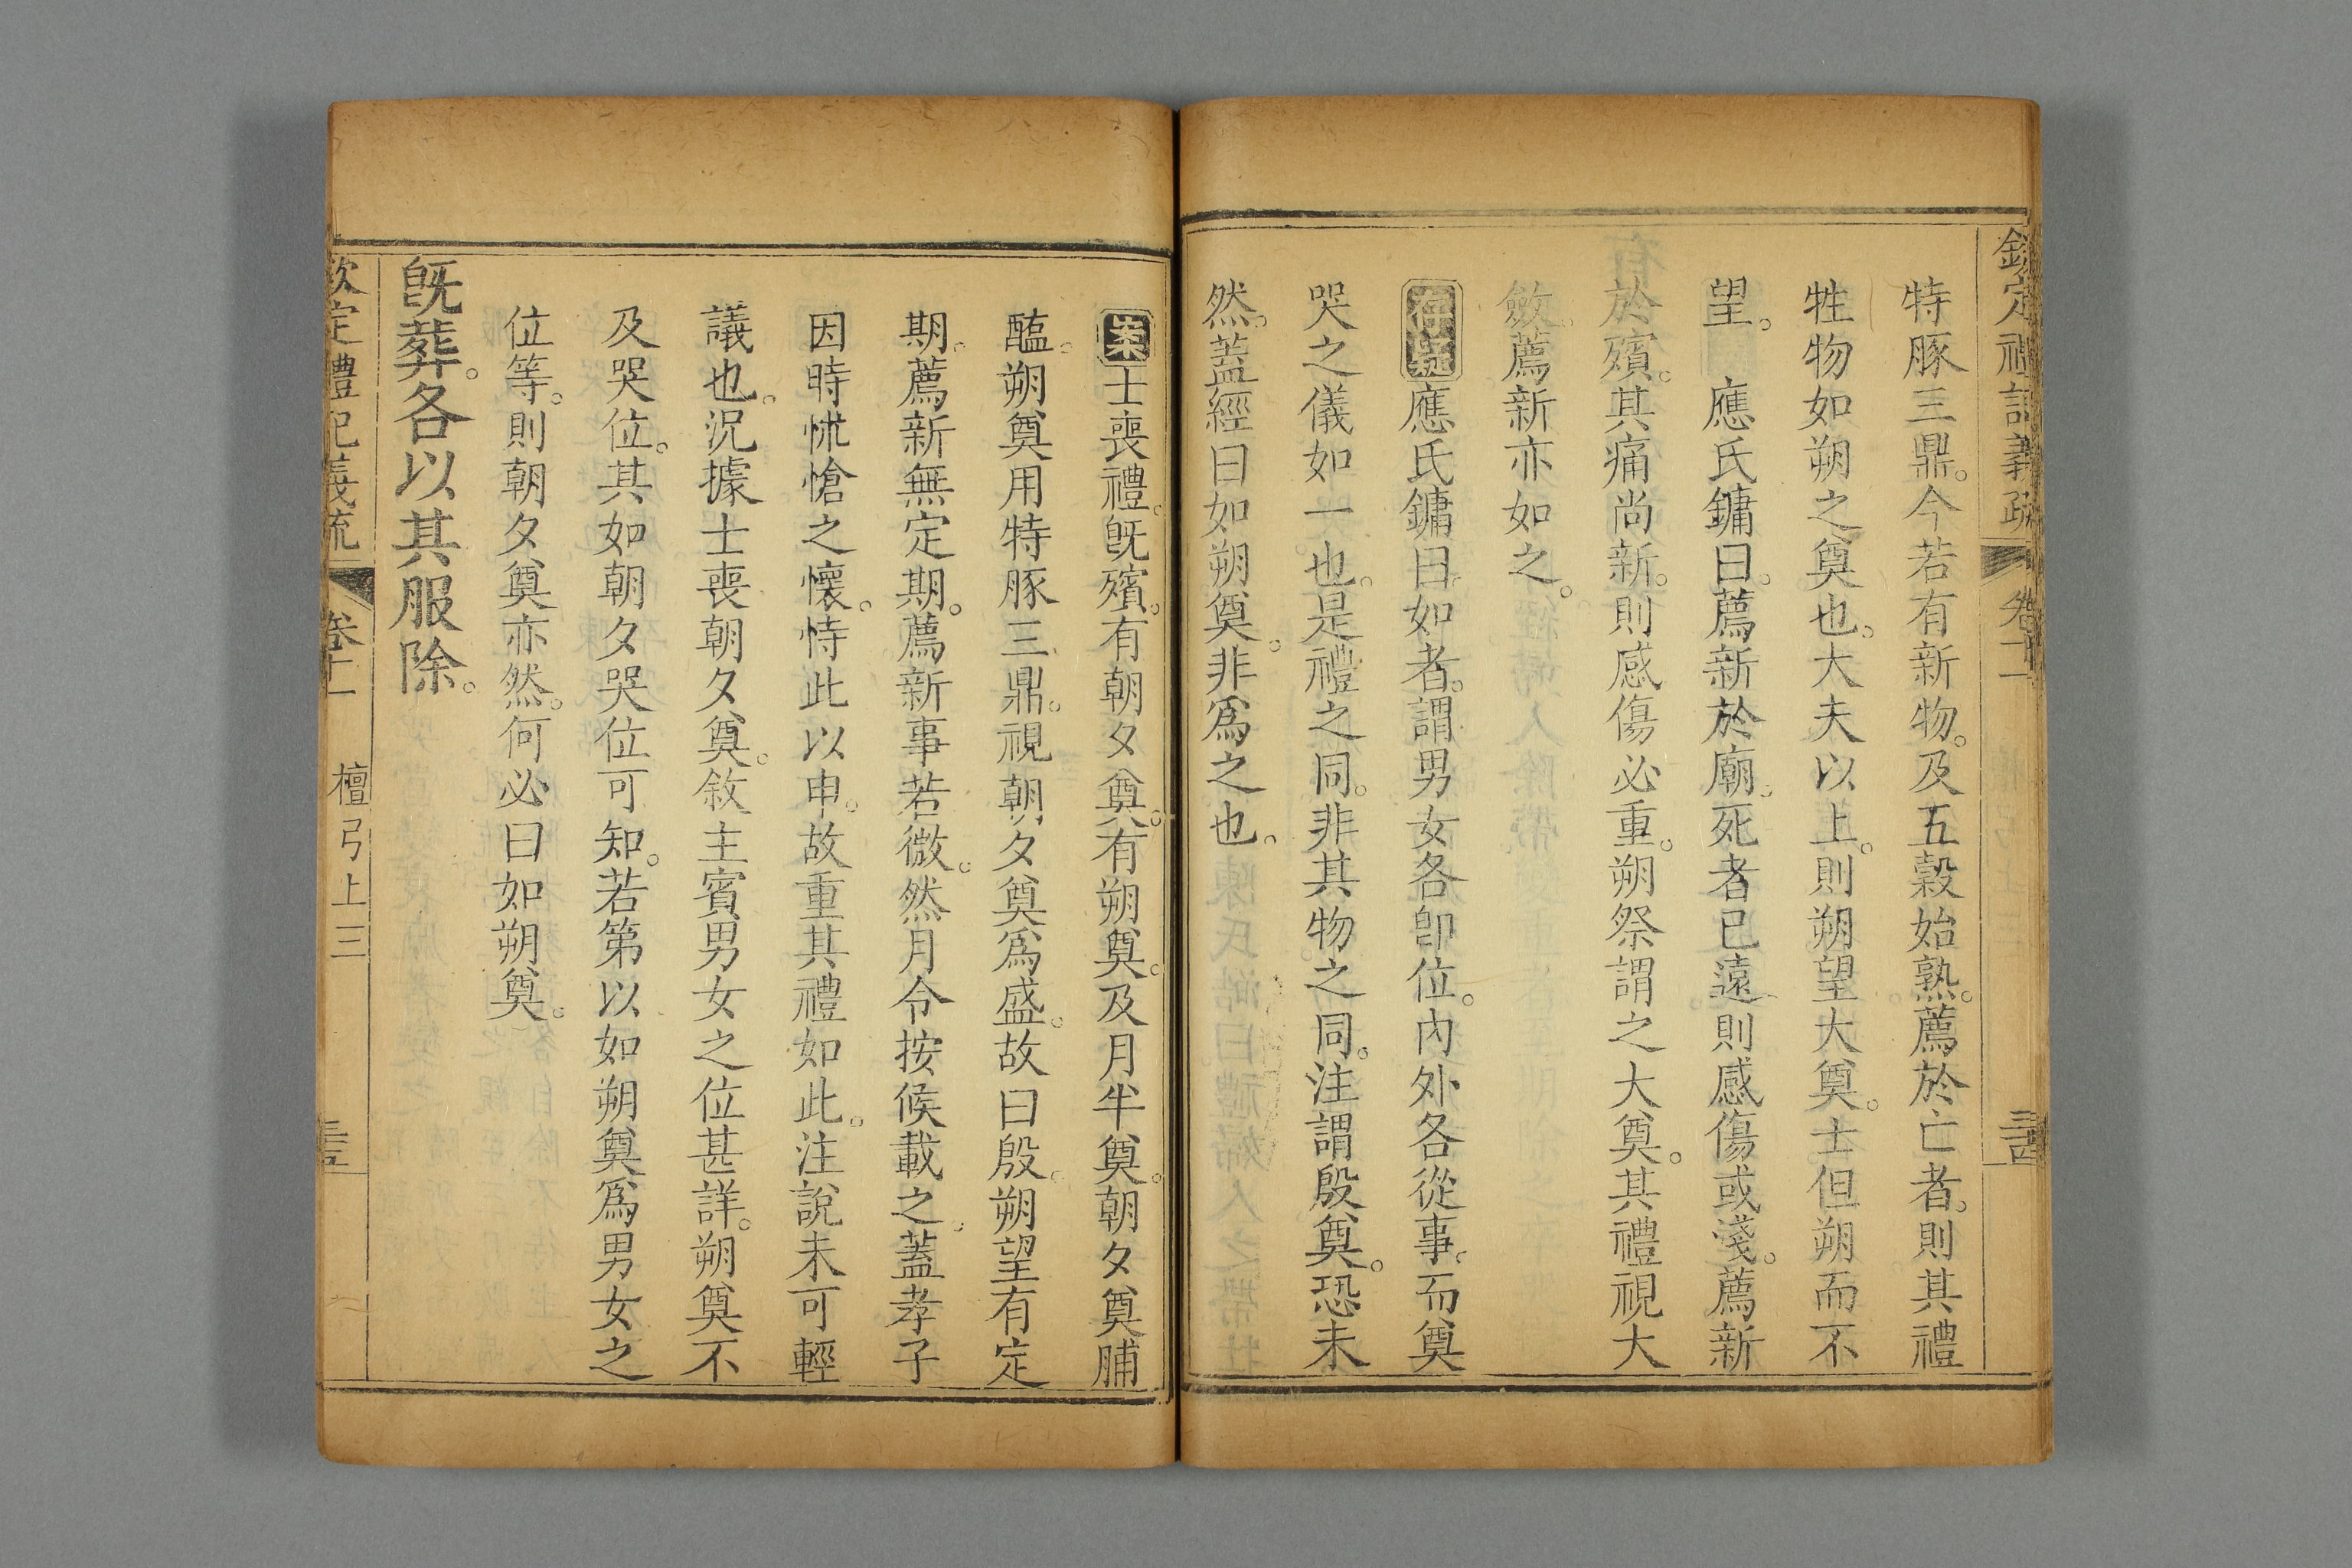 欽定禮記義疏 卷十一 三十四
特豚三鼎。今若有新物。及五穀始熟。薦於亡者。則其禮
牲物如朔之奠也。大夫以上。則朔望大奠。士但朔而不
望。 應氏鏞曰。薦新於廟。死者已遠。則感傷或淺。薦新
於殯。其痛尚新。則感傷必重。朔祭謂之大奠。其禮視大
斂。薦新亦如之。
存疑 應氏鏞曰。如者。謂男女各卽位。內外各從事。而奠
哭之儀如一也。是禮之同。非其物之同。注謂殷奠。恐未
然。蓋經曰如朔奠。非爲之也。
案 士喪禮。旣殯。有朝夕奠。有朔奠。及月半奠。朝夕奠脯
醢。朔奠用特豚三鼎。視朝夕奠爲盛。故曰殷。朔望有定
期。薦新無定期。薦新事若微。然月令按候載之。蓋孝子
因時怵愴之懷。恃此以申。故重其禮如此。注說未可輕
議也。況據士喪朝夕奠。敘主賓男女之位甚詳。朔奠不
及哭位。其如朝夕哭位可知。若第以如朔奠爲男女之
位等。則朝夕奠亦然。何必曰如朔奠。
旣葬。各以其服除。
欽定禮記義疏 卷十一 檀弓上三 三十五